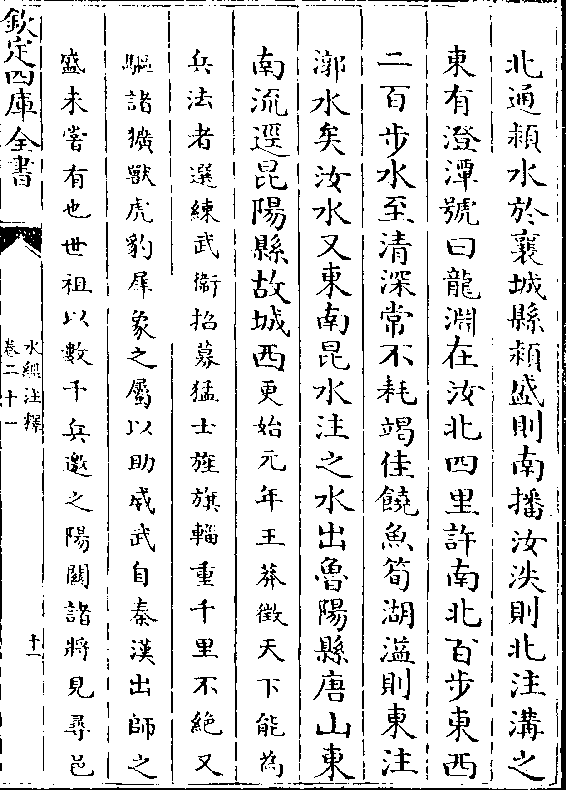 北通潁水於襄城縣潁盛則南播汝泆則北注溝之
東有澄潭號曰龍淵在汝北四里許南北百步東西
二百步水至清深常不耗竭佳饒魚筍湖溢則東注
漷水矣汝水又東南昆水注之水出魯陽縣唐山東
南流逕昆陽縣故城西更始元年王莽徵天下能為
兵法者選練武衞招募猛士旌旗輜重千里不絕又
驅諸獷獸虎豹犀象之屬以助威武自秦漢出師之
盛未嘗有也世祖以數千兵邀之陽關諸將見尋邑
欽定四庫全書
水經注釋
卷二十一
十一